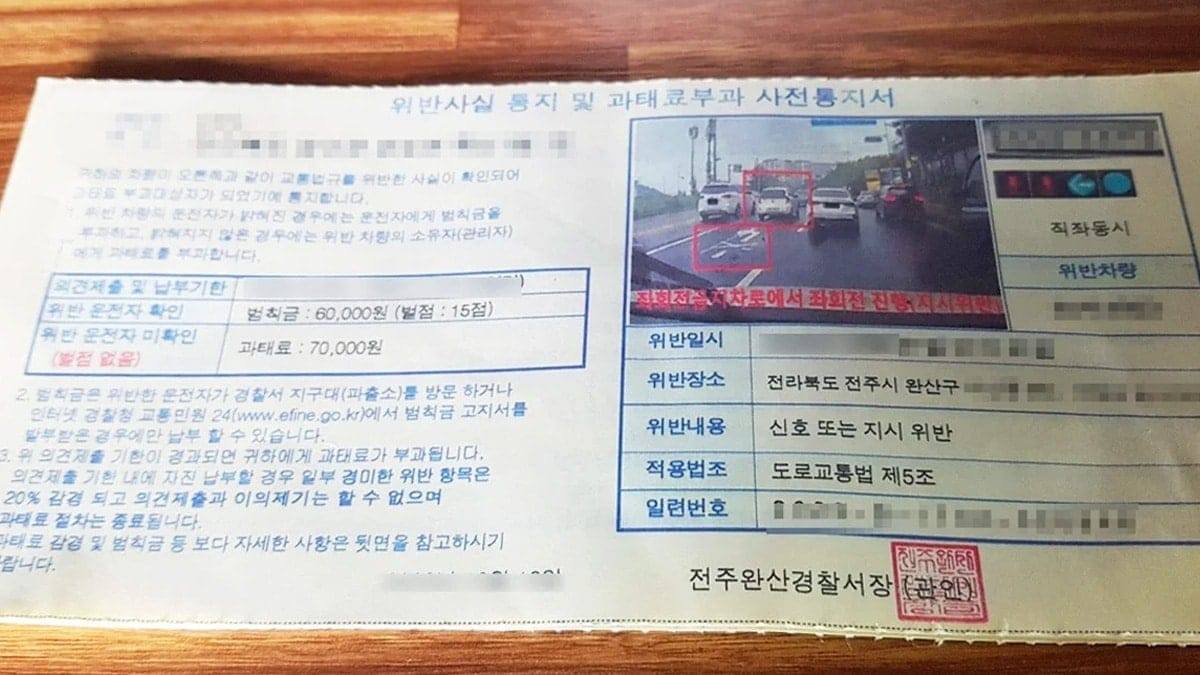 위반사실 통지 및 과태료부과 사전통지서
귀하의 차량이 오른쪽과 같이 교통법규를 위반한 사실이 확인되어
과태료 부과대상자가 되었기에 통지합니다.
1. 위반 차량의 운전자가 밝혀진 경우에는 운전자에게 범칙금을
부과하고, 밝혀지지 않은 경우에는 위반 차량의 소유자(관리자)
에게 과태료를 부과합니다.
의견제출 및 납부기한
위반 운전자 확인 범칙금 : 60,000원 (벌점 : 15점)
위반 운전자 미확인
(벌점 없음) 과태료 : 70,000원
2. 범칙금은 위반한 운전자가 경찰서 지구대(파출소)를 방문 하거나
인터넷 경찰청 교통민원 24(www.efine.go.kr)에서 범칙금 고지서를
발부받은 경우에만 납부 할 수 있습니다.
3. 위 의견제출 기한이 경과되면 귀하에게 과태료가 부과됩니다.
의견제출 기한 내에 자진 납부할 경우 일부 경미한 위반 항목은
20% 감경 되고 의견제출과 이의제기는 할 수 없으며
과태료 절차는 종료됩니다.
과태료 감경 및 범칙금 등 보다 자세한 사항은 뒷면을 참고하시기
바랍니다.
좌회전금지차로에서 좌회전 진행,지시위반
직좌동시
위반차량
위반일시
위반장소 전라북도 전주시 완산구
위반내용 신호 또는 지시 위반
적용법조 도로교통법 제5조
일련번호
전주완산경찰서장 (관인)